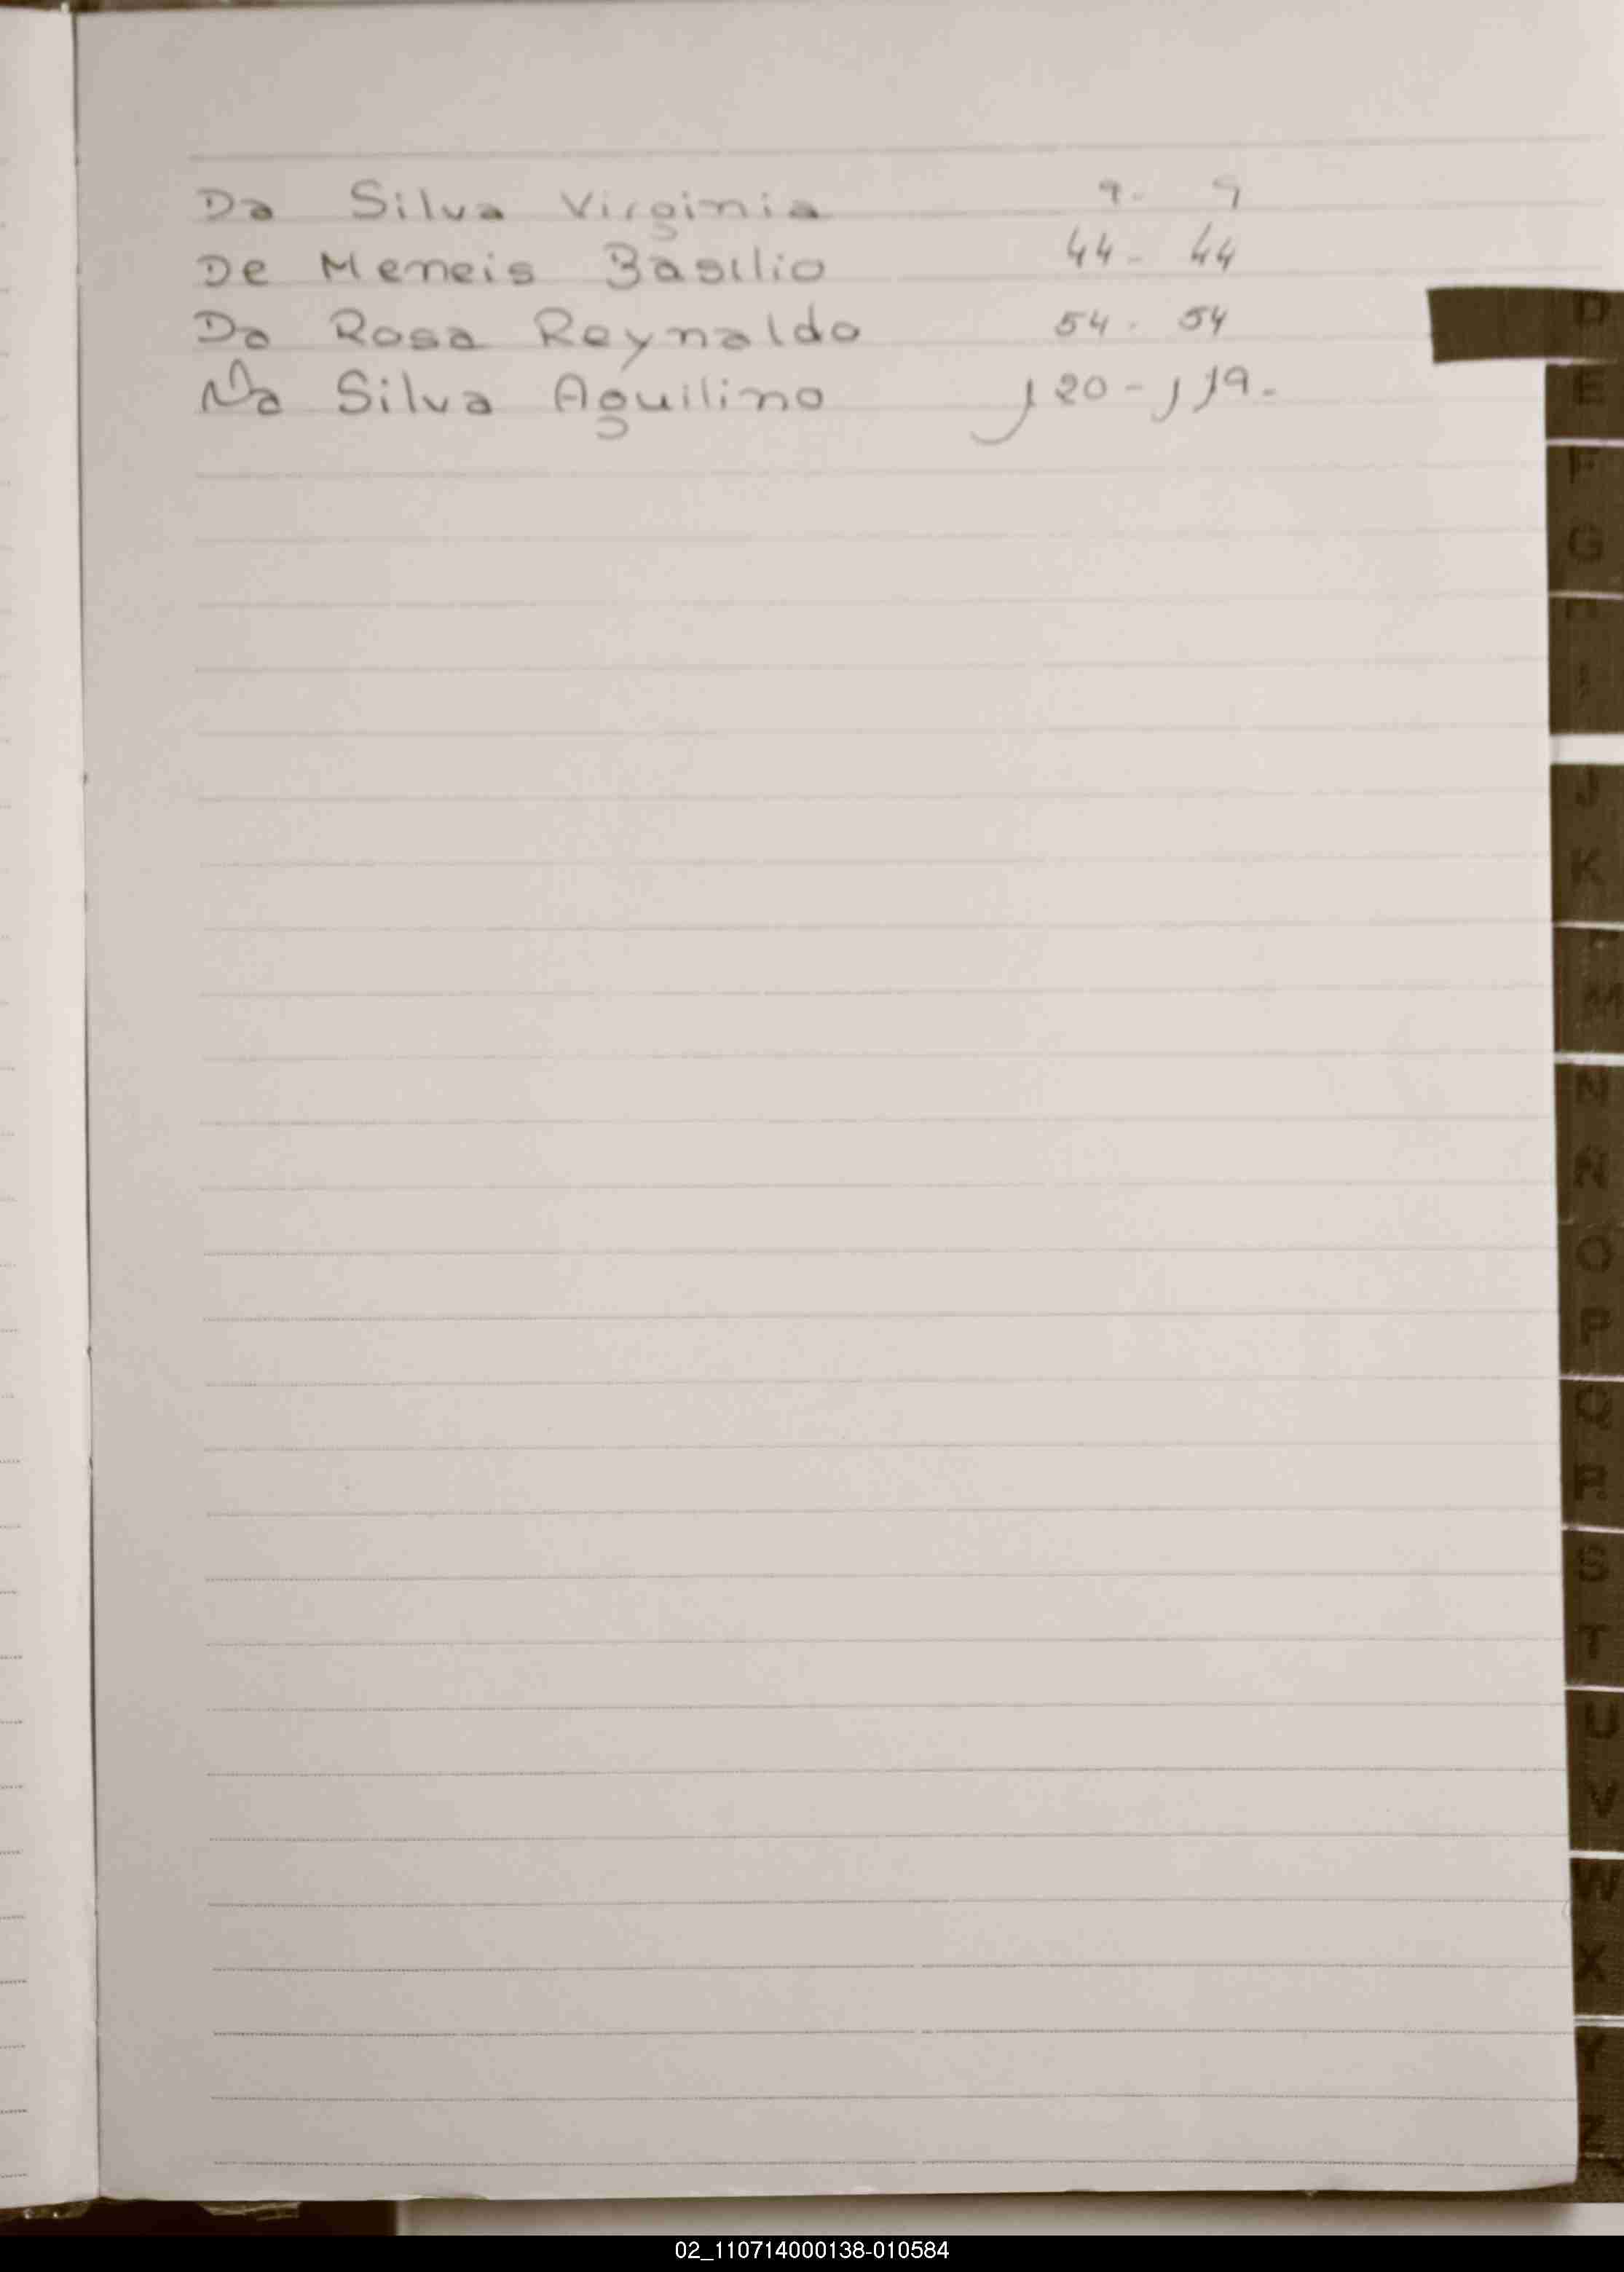 Da Silva Virginia 9- 9
De Meneis Basilio 44- 44
Da Rosa Reynaldo 54- 54
Da Silva Aguilino 120- 119-
D
E
F
G
H
I
J
K
M
N
Ñ
O
P
Q
R
S
T
U
V
W
X
Y
Z
02_110714000138-010584